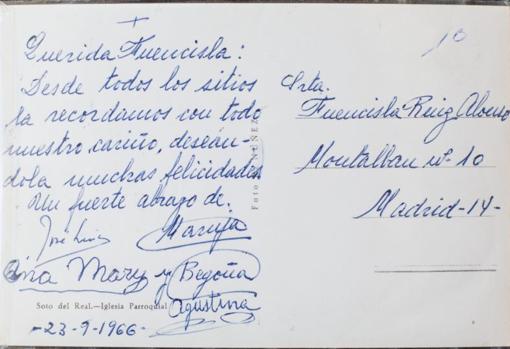 +
Querida Fuencisla:
Desde todos los sitios
la recordamos con todo
nuestro cariño, deseán-
dola muchas felicidades
Un fuerte abrazo de.
José Luis Maruja
Ana Mary y Begoña
Agustina
Soto del Real.—Iglesia Parroquial
-23-9-1966-
Foto NUÑEZ
10
Srta.
Fuencisla Ruiz Alonso
Montalban nº 10
Madrid-14-